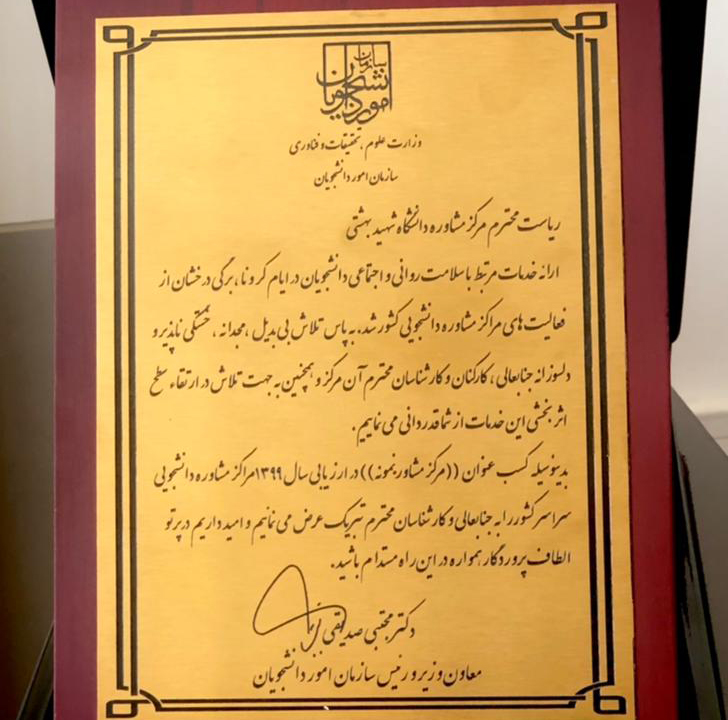 سازمان امور دانشجویان
وزارت علوم، تحقیقات و فناوری
سازمان امور دانشجویان
ریاست محترم مرکز مشاوره دانشگاه شهید بهشتی
ارائه خدمات مرتبط با سلامت روانی و اجتماعی دانشجویان در ایام کرونا، برگی درخشان از
فعالیت های مراکز مشاوره دانشجویی کشور شد. به پاس تلاش بی بدیل، مجدانه، خستگی ناپذیر و
دلسوزانه جنابعالی، کارکنان و کارشناسان محترم آن مرکز و همچنین به جهت تلاش در ارتقاء سطح
اثر بخشی این خدمات از شما قدردانی می نماییم.
بدینوسیله کسب عنوان ((مرکز مشاوره نمونه)) در ارزیابی سال ۱۳۹۹ مراکز مشاوره دانشجویی
سراسر کشور را به جنابعالی و کارشناسان محترم تبریک عرض می نمائیم و امید داریم در پرتو
الطاف پروردگار همواره در این راه مستدام باشید.
دکتر مجتبی صدیقی
معاون وزیر و رئیس سازمان امور دانشجویان